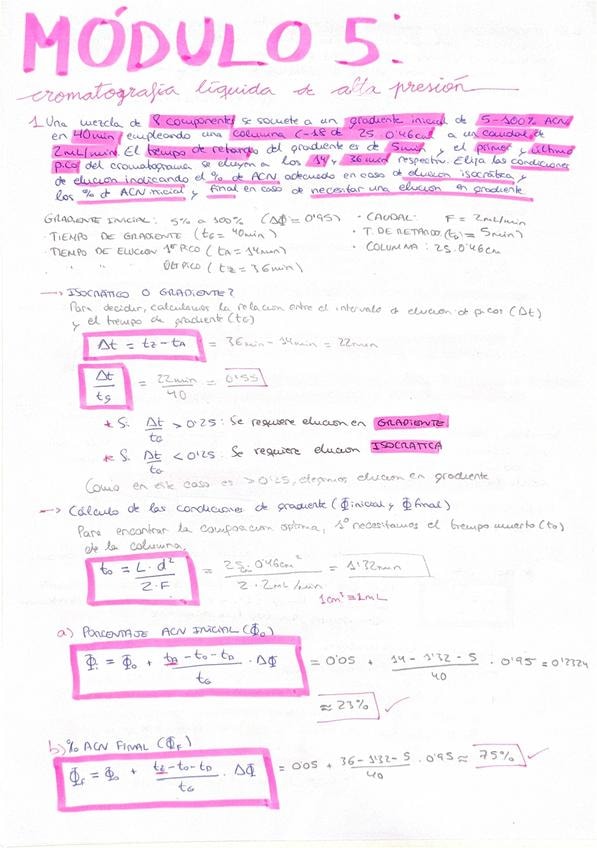 MÓDULO 5:
cromatografía líquida de alta presión
1. Una mezcla de 8 componentes se somete a un gradiente inicial de 5-100% ACN
en 40min, empleando una columna C-18 de 25·0'46cm a un caudal de
2mL/min. El tiempo de retardo del gradiente es de 5min y el primer y último
pico del cromatograma se eluyen a los 14 y 36min respectiv. Elija las condiciones
de elución indicando el % de ACN adecuado en caso de elución isocrática y
los % d ACN inicial y final en caso de necesitar una elución en gradiente.
GRADIENTE INICIAL: 5% a 100% (ΔΦ = 0'95) · CAUDAL: F = 2mL/min
· TIEMPO DE GRADIENTE (tG = 40min) · T. DE RETARDO (tD) = 5min
· TIEMPO DE ELUCIÓN 1er PICO (tA = 14min) · COLUMNA: 25·0'46cm
" " " ÚLT PICO (tZ = 36min)
→ ISOCRÁTICO O GRADIENTE?
Para decidir, calculamos la relación entre el intervalo d elución d picos (Δt)
y el tiempo de gradiente (tG)
Δt = tZ - tA = 36min - 14min = 22min
Δt/tG = 22min/40 = 0'55
* Si Δt/tG > 0'25: Se requiere elución en GRADIENTE
* Si Δt/tG < 0'25: Se requiere elución ISOCRÁTICA
Como en este caso es > 0'25, elegimos elución en gradiente
→ Cálculo de las condiciones de gradiente (Φ inicial y Φ final)
Para encontrar la composición óptima, 1º necesitamos el tiempo muerto (t0)
de la columna,
t0 = L·d²/2·F = 25·0'46cm²/2·2mL/min = 1'32min
1cm³ = 1mL
a) PORCENTAJE ACN INICIAL (Φ0)
Φi = Φ0 + tA-t0-tD/tG · ΔΦ = 0'05 + 14-1'32-5/40 · 0'95 = 0'2324
≈ 23% ✓
b) % ACN FINAL (ΦF)
Φf = Φ0 + tZ-t0-tD/tG · ΔΦ = 0'05 + 36-1'32-5/40 · 0'95 ≈ 75% ✓